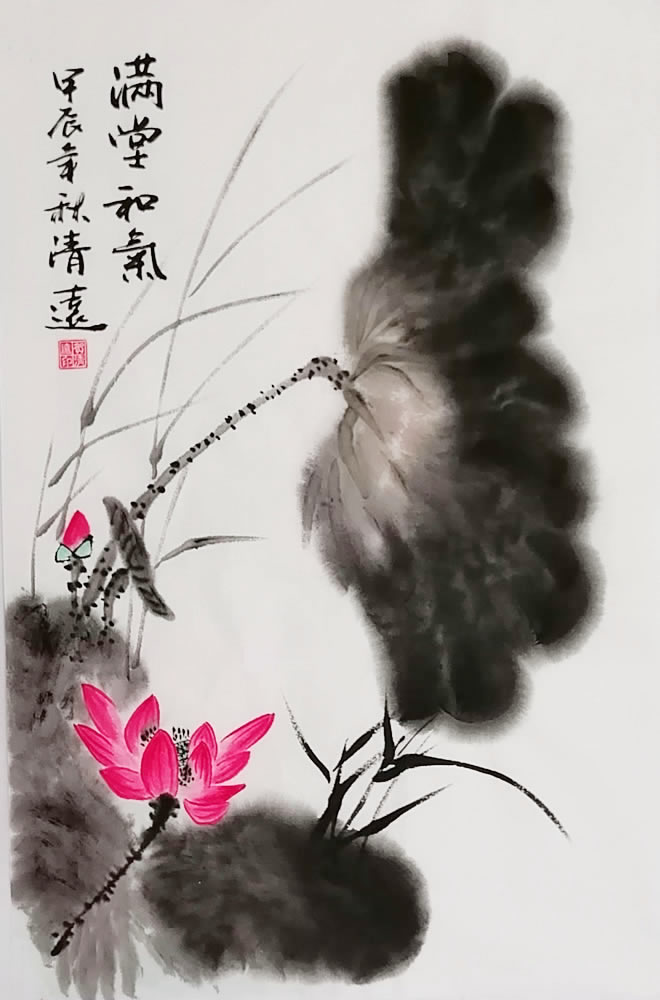 满堂和氣
甲辰年秋清遠